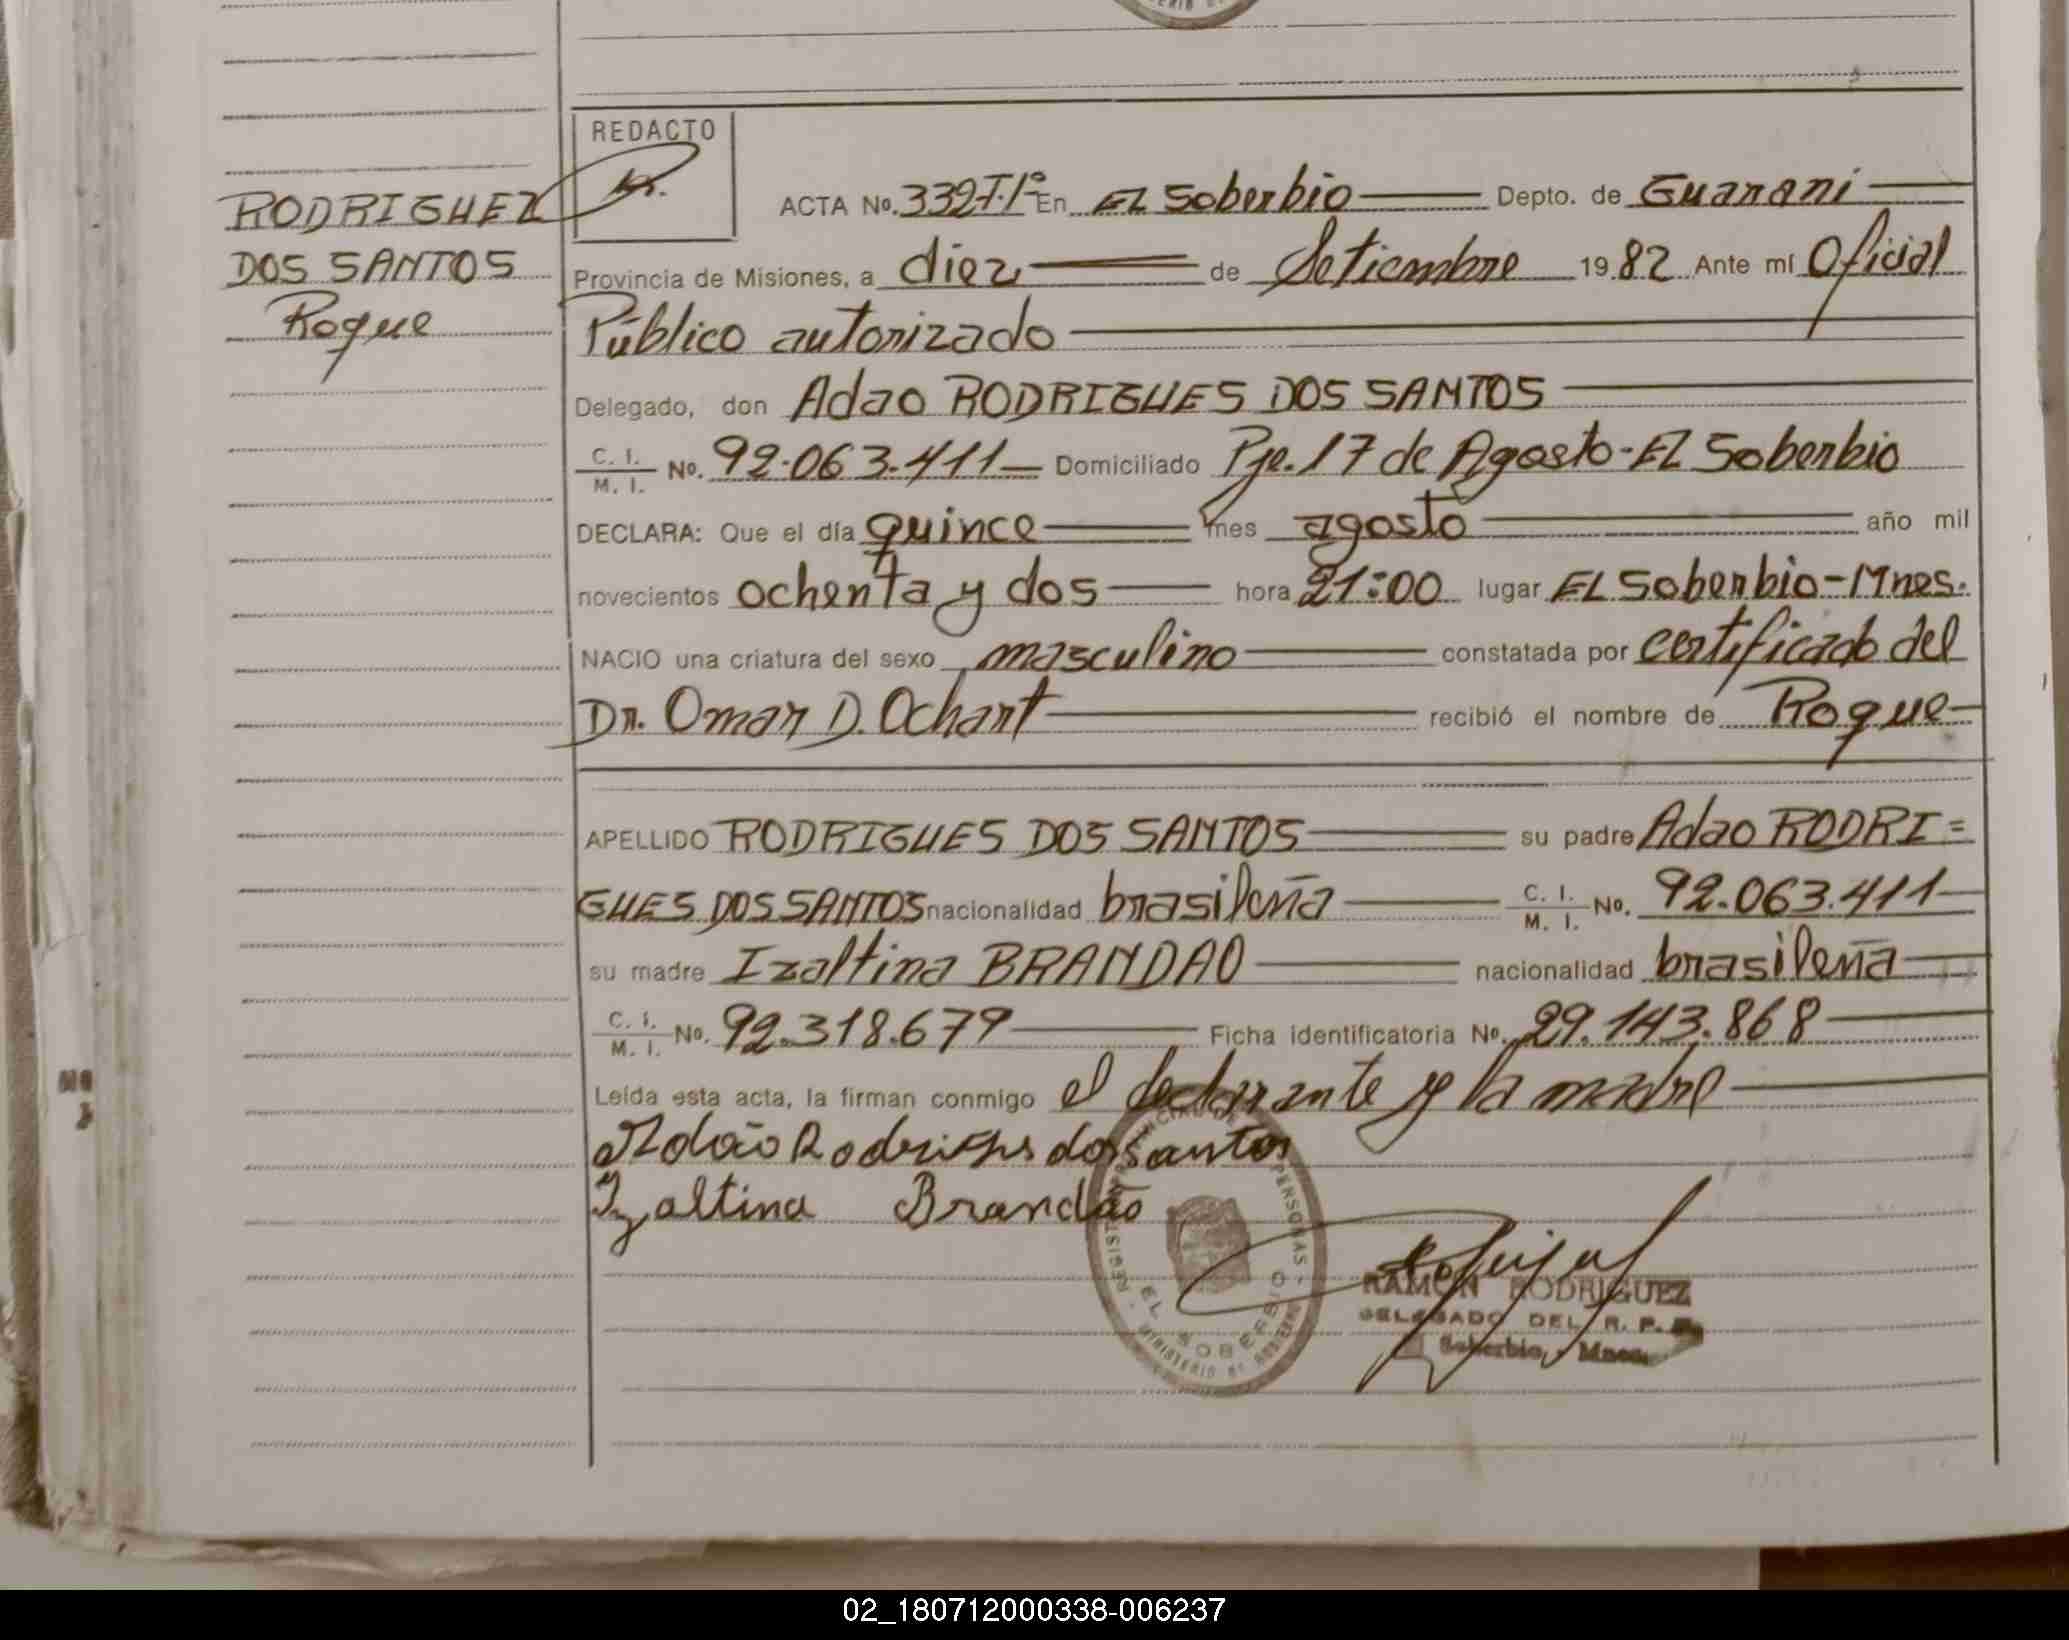 RODRIGUEZ
DOS SANTOS
Roque
REDACTO
ACTA No. 332 T.1º En EL Soberbio Depto. de Guarani
Provincia de Misiones, a diez de Setiembre 1982 Ante mí Oficial
Público autorizado
Delegado, don Adao RODRIGUES DOS SANTOS
C. I. M. I. No. 92.063.411 Domiciliado Pje. 17 de Agosto - EL Soberbio
DECLARA: Que el día quince mes agosto año mil
novecientos ochenta y dos hora 21:00 lugar EL Soberbio - Mnes.
NACIO una criatura del sexo masculino constatada por certificado del
Dr. Omar D. Ochart recibió el nombre de Roque
APELLIDO RODRIGUES DOS SANTOS su padre Adao RODRI=
GUES DOS SANTOS nacionalidad brasileña C. I. M. I. No. 92.063.411
su madre Izaltina BRANDAO nacionalidad brasileña
C. I. M. I. No. 92.318.679 Ficha identificatoria No. 29.143.868
Leída esta acta, la firman conmigo el declarante y la madre
Adão Rodrigues dos santos
Izaltina Brandão
EL SOBERBIO
RAMON RODRIGUEZ
DELEGADO DEL R. P.
Soberbio - Mnes.
02_180712000338-006237